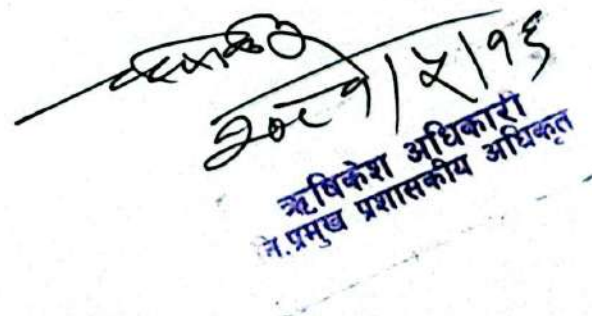 २०८१/५/१६
ऋषिकेश अधिकारी
नि.प्रमुख प्रशासकीय अधिकृत